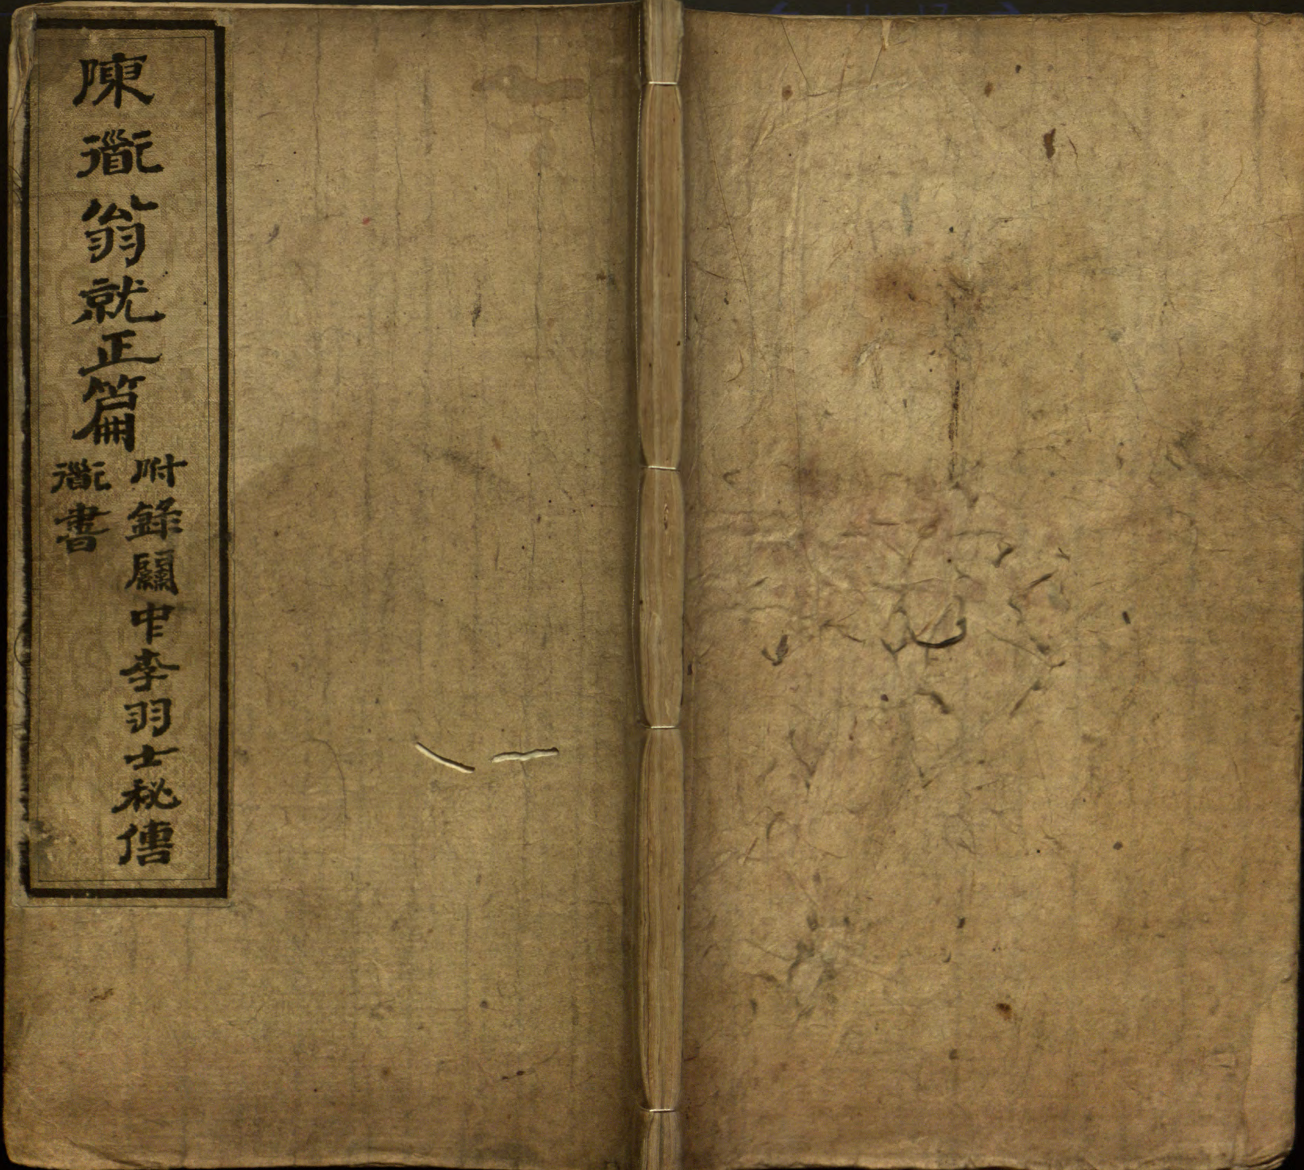 陳衜翁就正篇
附錄關中李羽士秘傳
衜書